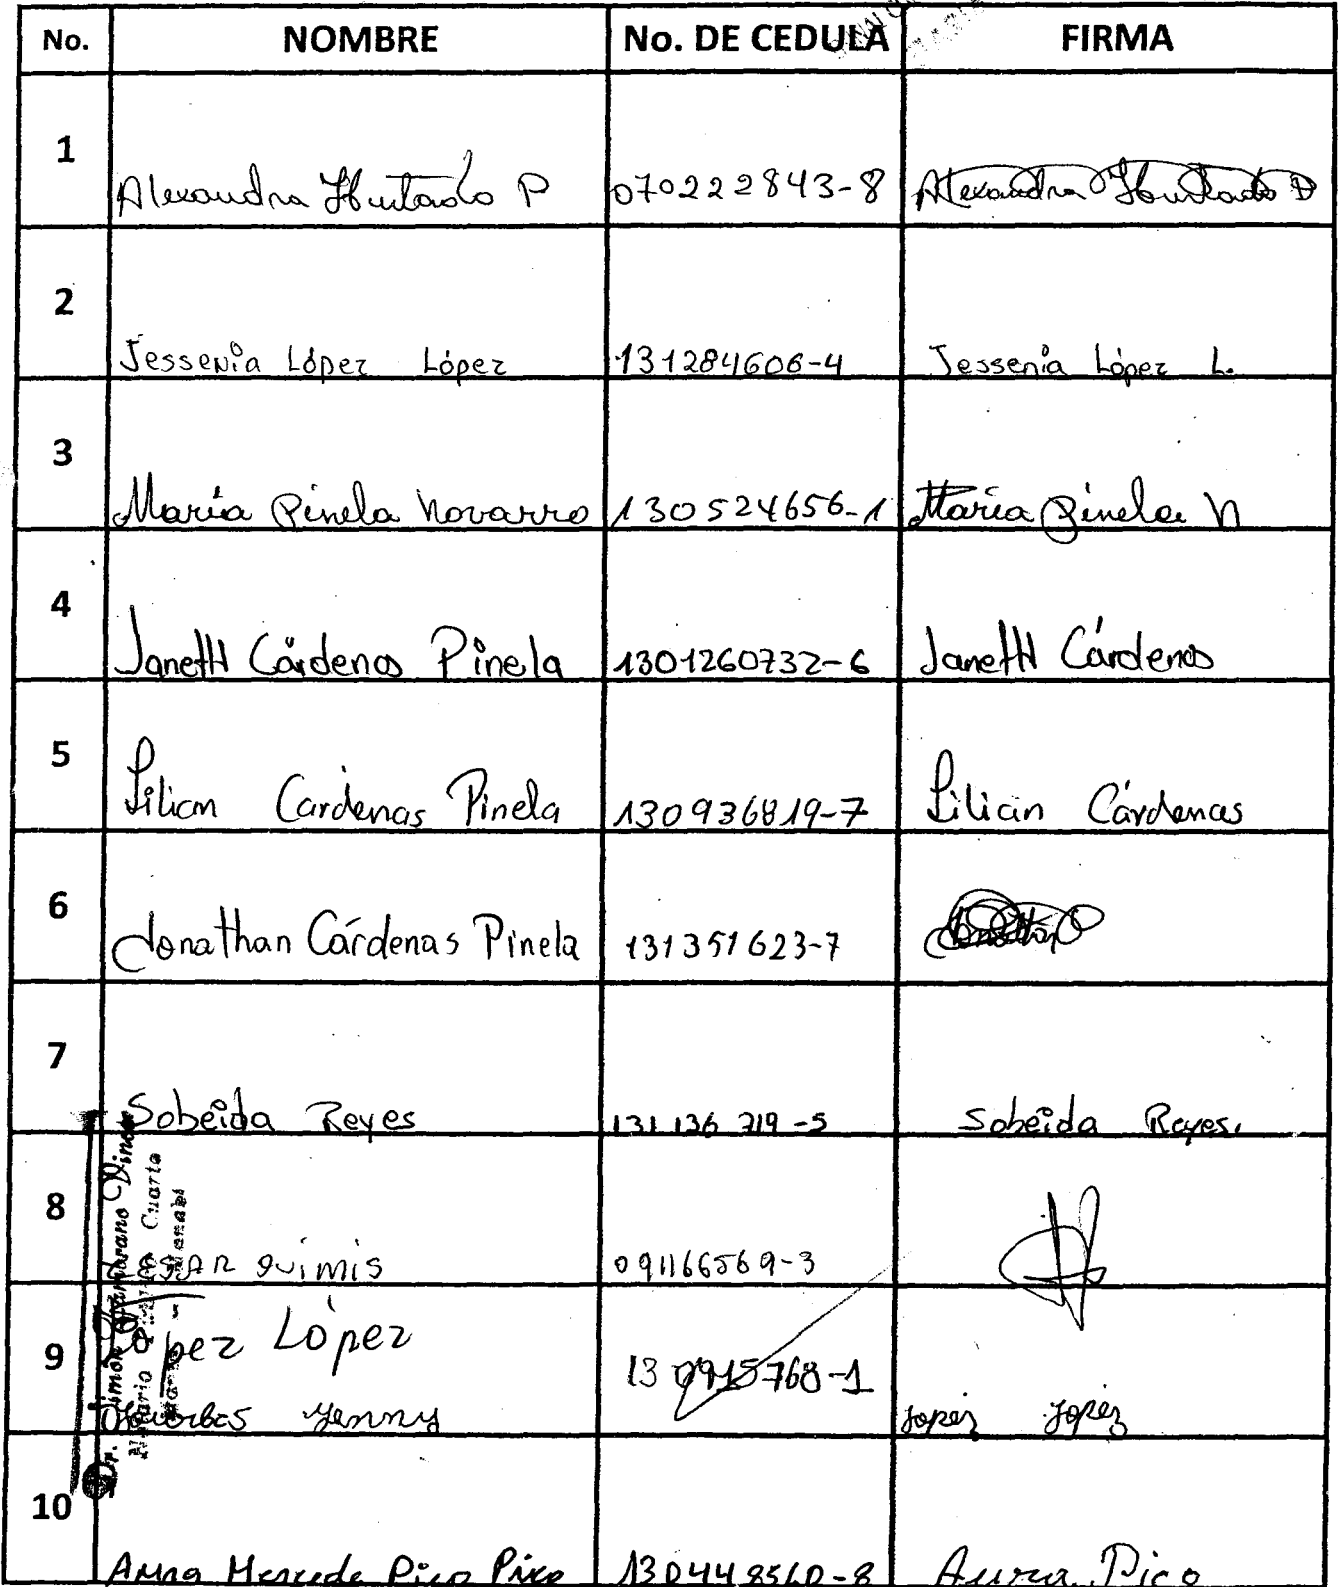 No. NOMBRE No. DE CEDULA FIRMA
1 Alexandra Hurtado P 070222843-8 Alexandra Hurtado P
2 Jessenia López López 131284606-4 Jessenia López L.
3 María Pinela Navarro 130524656-1 María Pinela N
4 Janeth Cárdenas Pinela 1301260732-6 Janeth Cárdenas
5 Lilian Cardenas Pinela 130936819-7 Lilian Cárdenas
6 Jonathan Cárdenas Pinela 131351623-7
7 Sobeida Reyes 131136719-5 Sobeida Reyes.
8 Quimis 091166569-3
López López
9 130915768-1
Yenny Lopez Lopez
10 Pico Pico 130448560-8 Aura Pico
Dr. Simón Zambrano Vinces
Notario Cuarto
Manabí